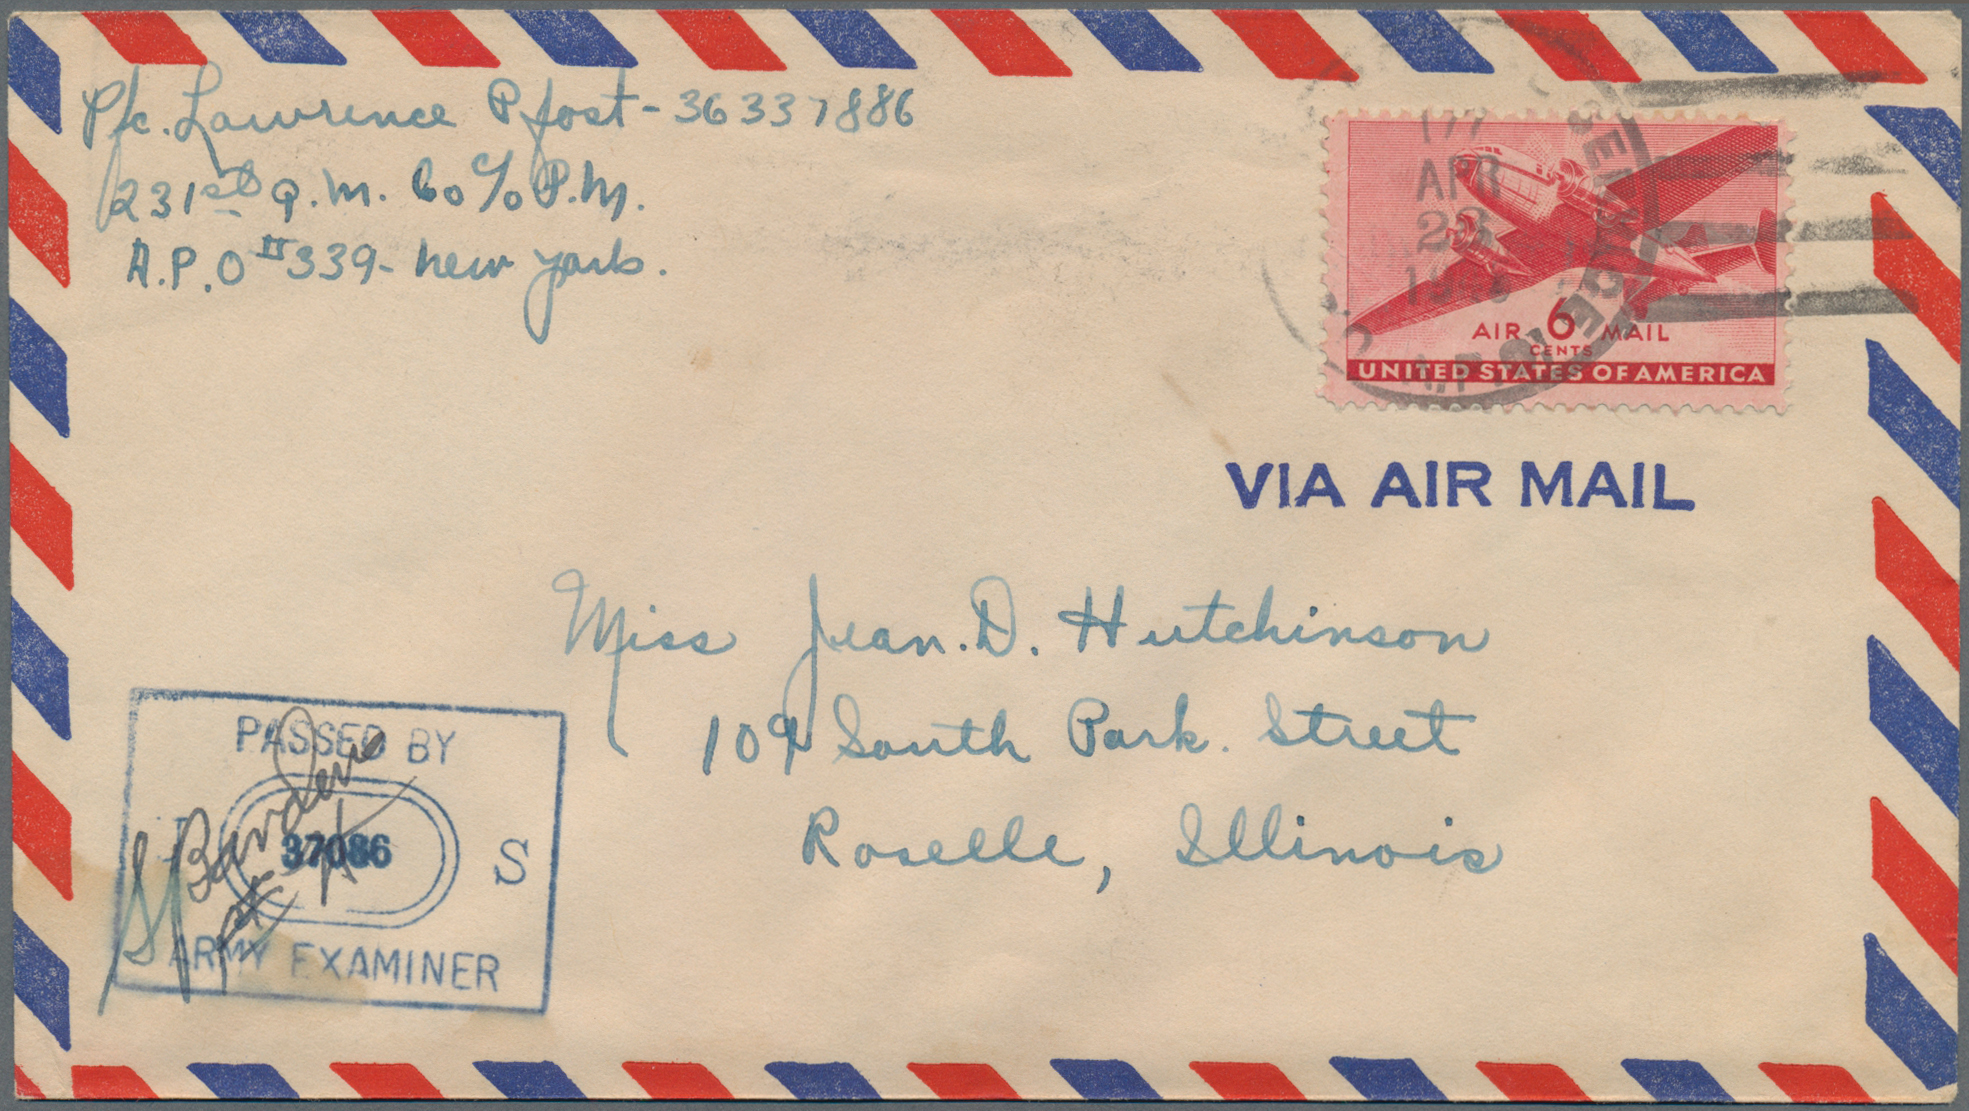 Pfc. Lawrence Pfost - 36337886
231st Q.M. Co c/o P.M.
A.P.O # 339 - New York.
APR
1943
AIR 6 MAIL
CENTS
UNITED STATES OF AMERICA
VIA AIR MAIL
Miss Jean. D. Hutchinson
109 South Park. Street
Roselle, Illinois
PASSED BY
37086
S
ARMY EXAMINER